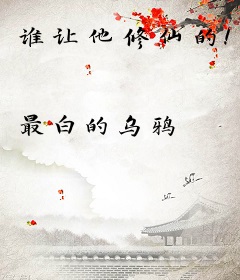 谁让他修仙的!
最白的乌鸦